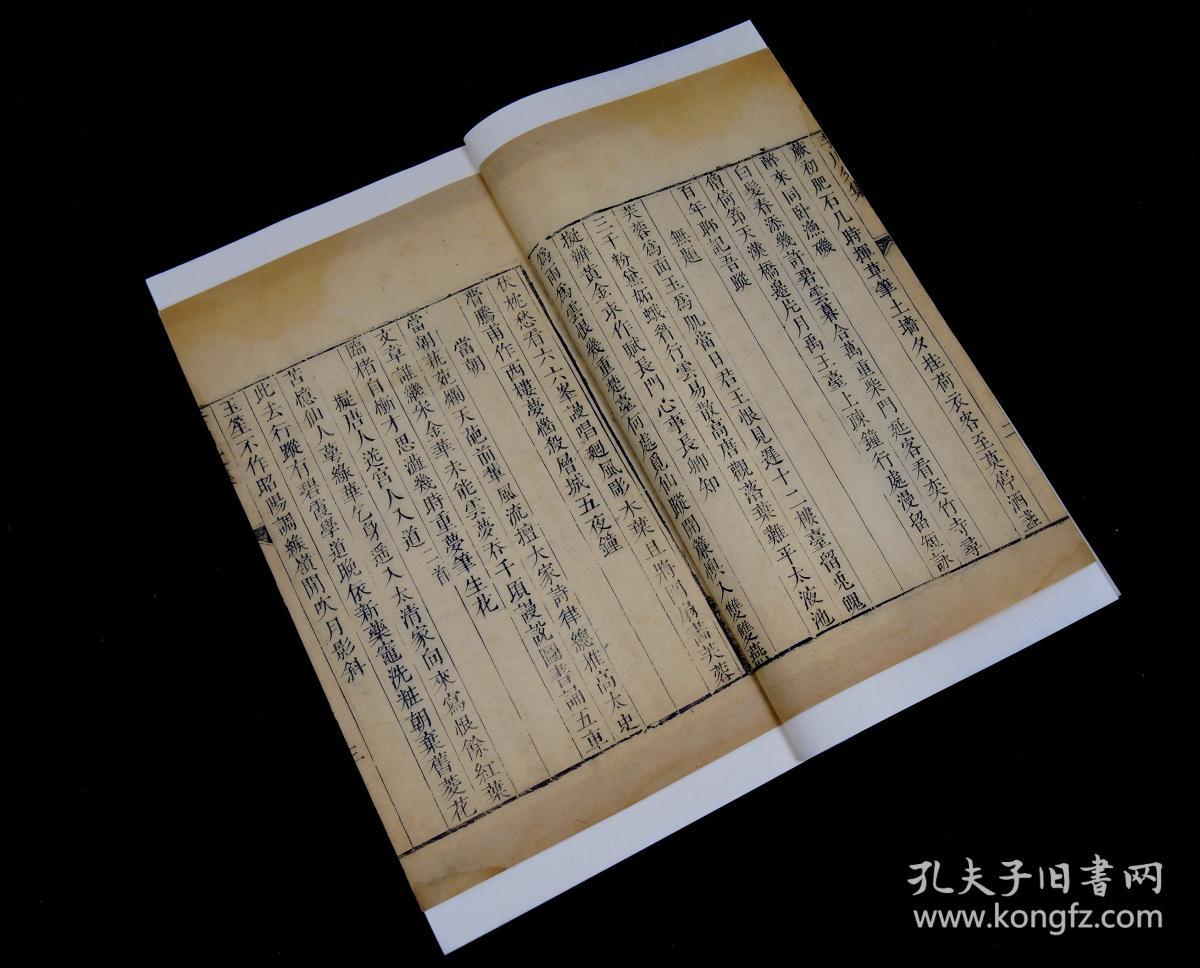 蕨初肥石几時揮草筆土墻夕挂荷衣客至莫停酒盞
醉來同卧漁磯
白髮春深幾許碧雲暮合萬重柴門延客看奕竹寺尋
僧倚筇天漢橋邊片月禹王臺上疎鐘行處漫留短詠
百年聊記吾蹤
無題
芙蓉為面玉為肌當日君王恨見遲十二樓臺留兎魄
三千粉黛妬蛾眉行雲易散高唐觀落葉難平太液池
擬辦黃金求作賦長門心事長卿知
為雨為雲恨幾重楚臺何處覓仙蹤開簾人雙雙燕
芙蓉
伏枕愁看六六峯謾唱廻風彫木葉且將
曹騰甫作西樓夢惱殺層城五夜鐘
當朝
當朝執苑爛天葩前輩風流擅大家詩律總推高太史
文章誰繼宋金華未能雲夢吞千頃謾說圖書誦五車
臨楮自慚才思澁幾時重夢筆生花
擬唐人送宮人入道二首
苦憶仙人蕚綠華乞身遥入太清家向來寫恨餘紅葉
此去行蹤有碧霞學道晚依新藥竈洗粧朝棄舊菱花
玉笙不作昭陽調緱嶺閒吹月影斜
三
孔夫子旧书网
www.kongfz.com